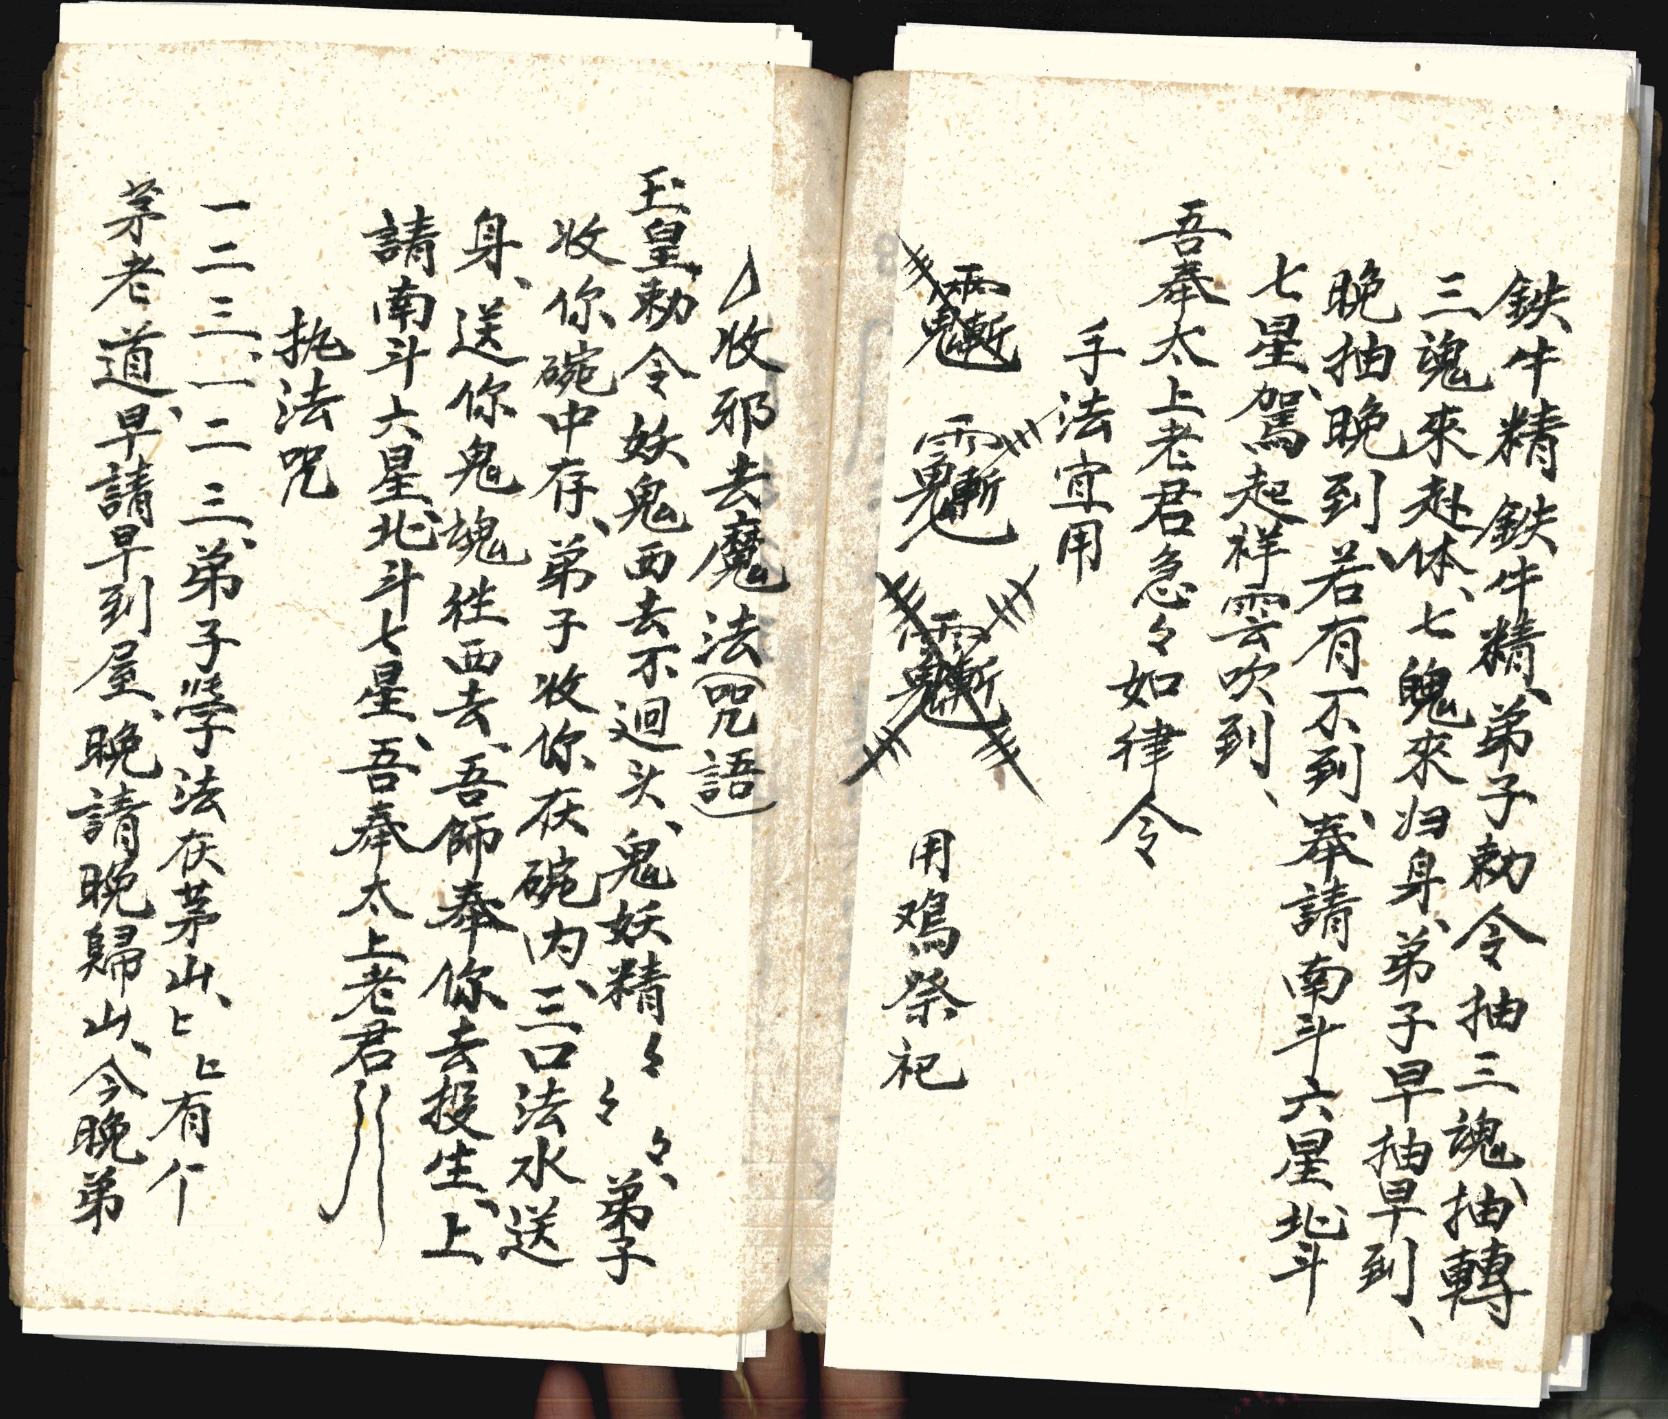 鉄牛精鉄牛精、弟子勅令抽三魂、抽轉
三魂來赴体、七魄來归身、弟子早抽早到、
晚抽晚到、若有不到、奉請南斗六星北斗
七星、駕起祥雲吹到、
吾奉太上老君急々如律令
手法宜用
用鳮祭祀
收邪去魔法(咒語)
玉皇勅令妖鬼西去不迴头、鬼妖精々々々、弟子
收你碗中存、弟子收你在碗内、三口法水送
身、送你鬼魂往西去、吾師奉你去投生、上
請南斗六星、北斗七星、吾奉太上老君
执法咒
一二三、一二三、弟子學法在茅山、上上有个
茅老道、早請早到屋、晚請晚歸山、今晚弟